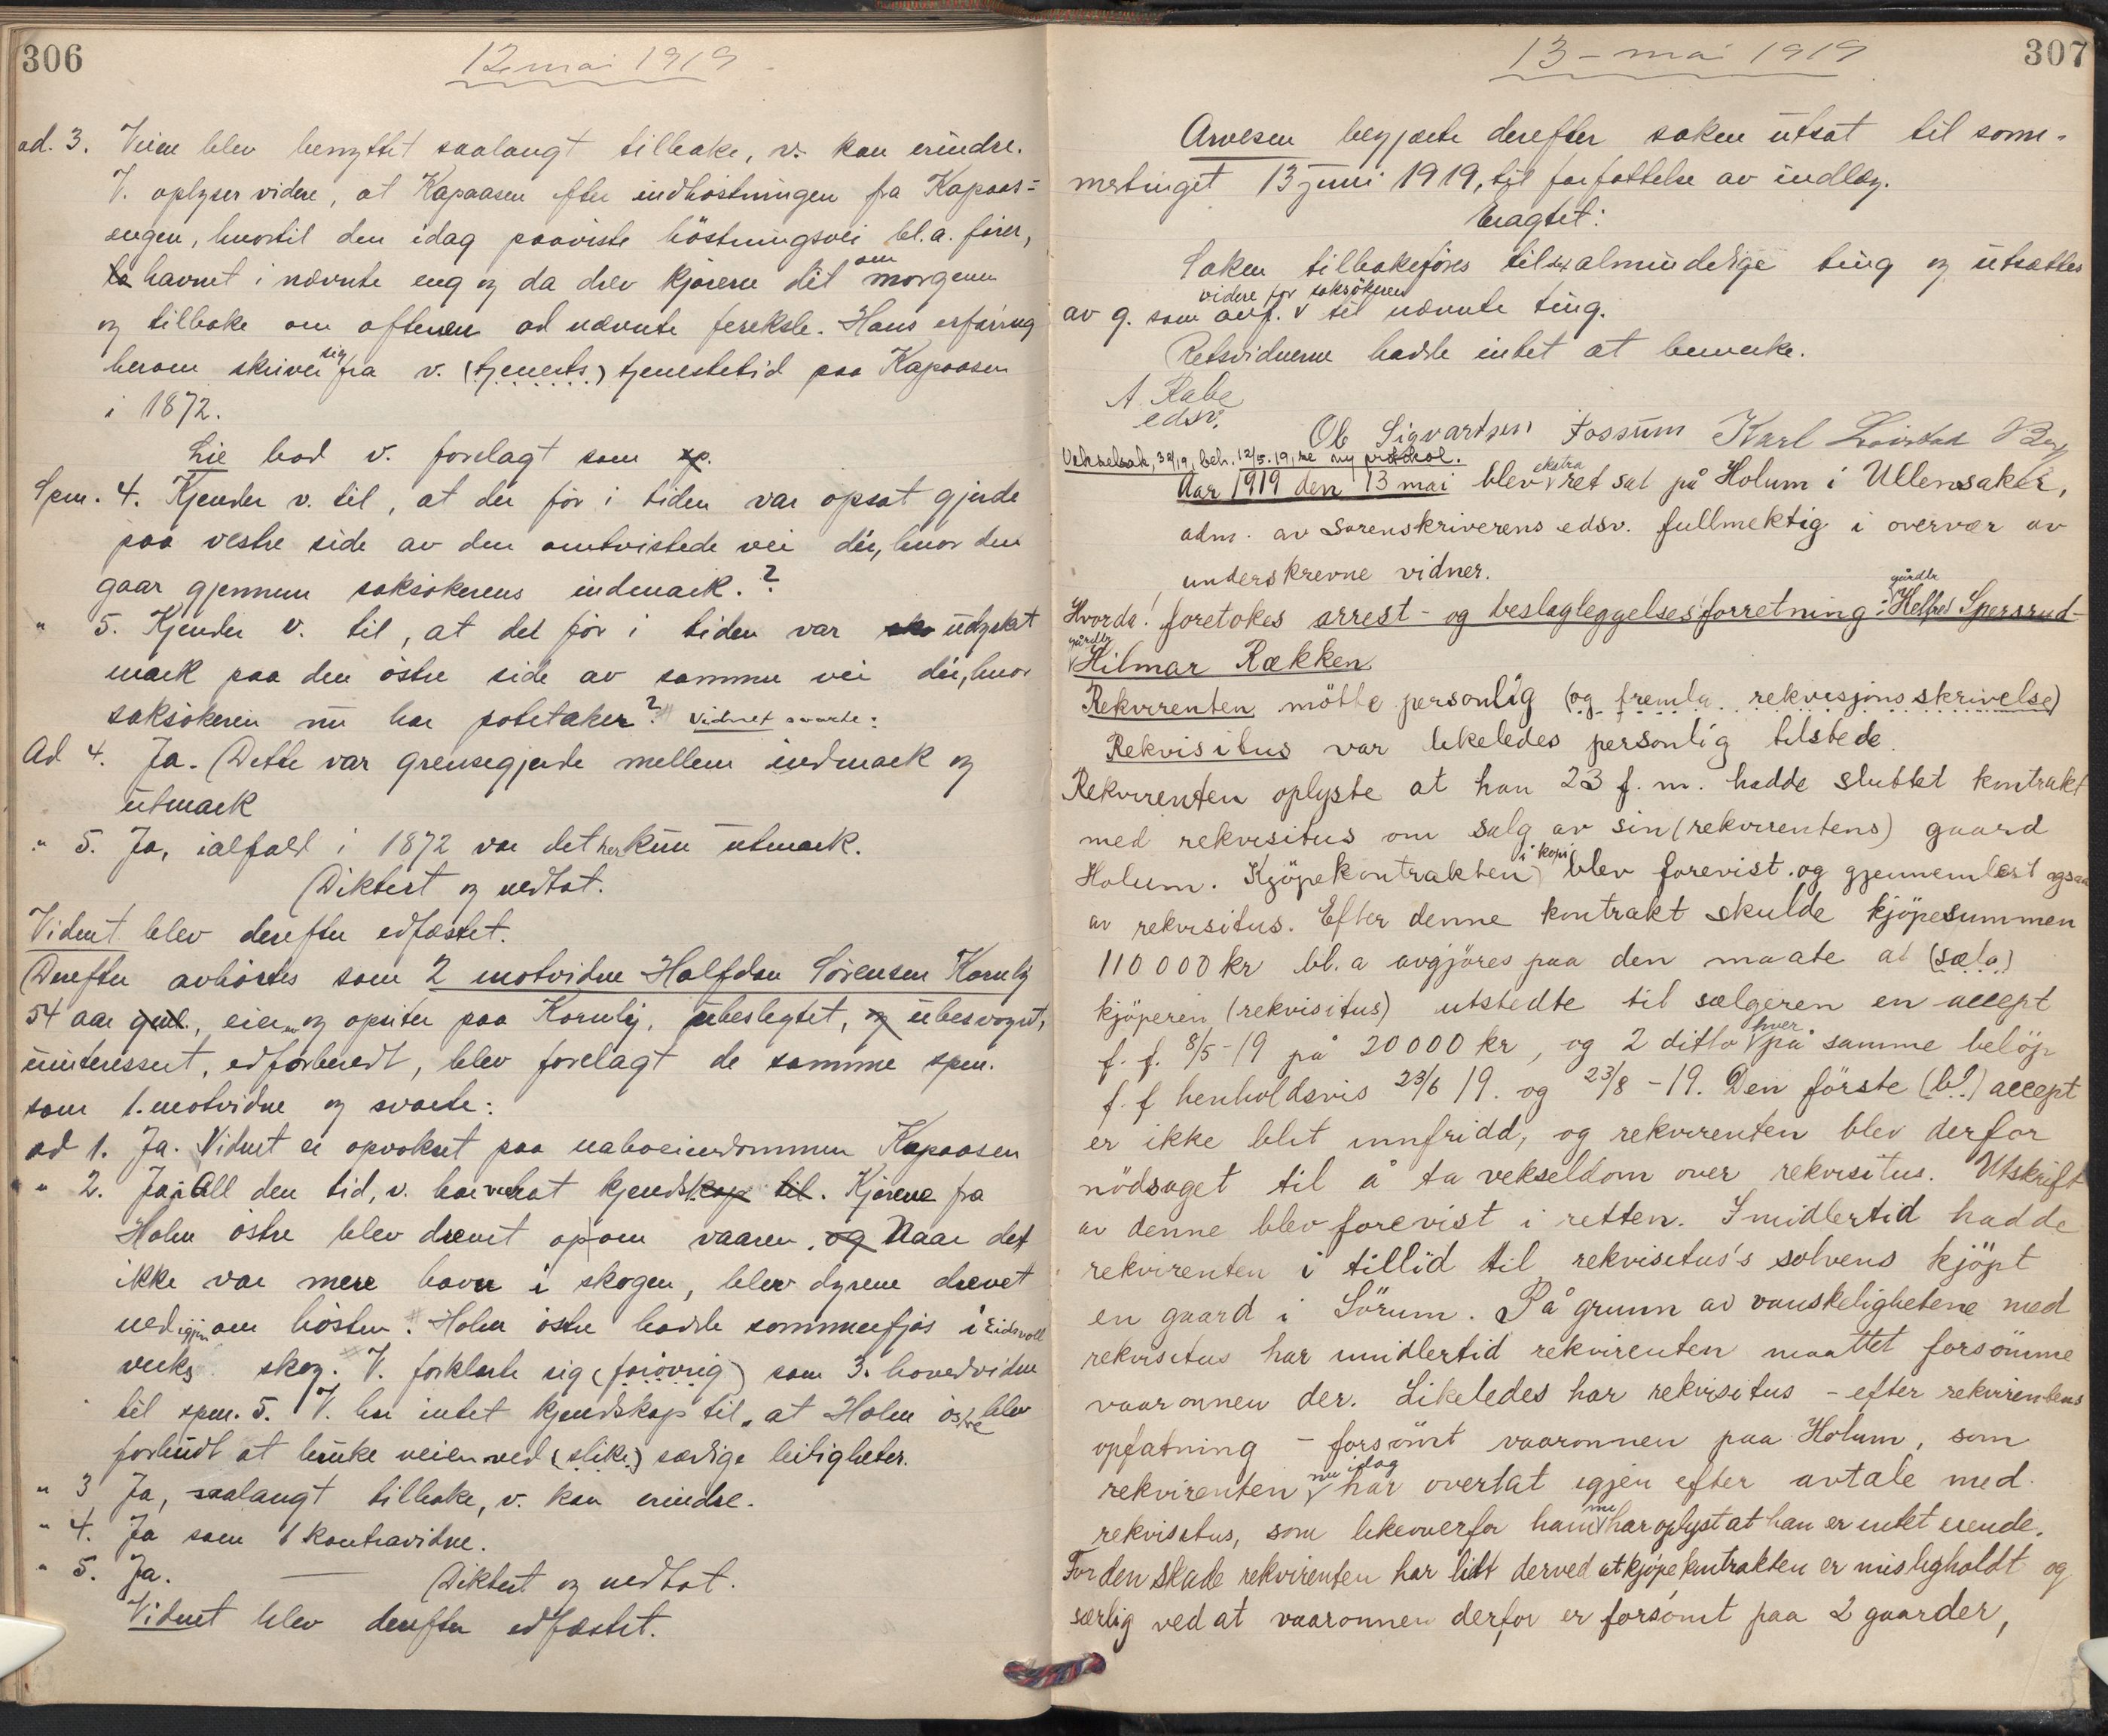 306
12 mai 1919
ad. 3. Veien blev benyttet saalangt tilbake, v. kan erindre.
V. oplyser videre, at Kapaasen efter indhøstningen fra Kapaas-
engen, hvortil den idag paaviste høstningsvei bl.a. fører,
havnet i nævnte eng og da drev kjørene dit om morgenen
og tilbake om aftenen ad nævnte fereksle. Hans erfaring
herom skriver sig fra v. (tjenests) tjenestetid paa Kapaasen
i 1872.
Lie bad v. forelagt som sp.
Spm. 4. Kjender v. til, at der før i tiden var opsat gjerde
paa vestre side av den omtvistede vei der, hvor den
gaar gjennem saksøkerens indmark.?
" 5. Kjender v. til, at det før i tiden var udyrket
mark paa den østre side av samme vei der, hvor
saksøkeren nu har poteteaker? Vidnet svarte:
Ad 4. Ja. Dette var grensegjerde mellem indmark og
utmark
" 5. Ja, ialfald i 1872 var det her kun utmark.
Diktert og vedtat.
Vidnet blev derefter edfæstet.
Derefter avhørtes som 2 motvidne Halfdan Sørensen Kornly
54 aar gml., eier og opsitter paa Kornly, ubeslegtet, og ubesvogret,
uinteressert, edforberedt, blev forelagt de samme spm.
som 1. motvidne og svarte:
ad 1. Ja. Vidnet er opvokset paa naboeiendommen Kapaasen
" 2. Ja i All den tid, v. har verat kjendskap til. Kjørene fra
Holm østre blev drevet op om vaaren. og Naar det
ikke var mere havn i skogen, blev dyrene drevet
ned igjen om høsten. Holm østre hadde sommerfjøs i Eidsvoll
verks skog. V. forklarte sig (forøvrig) som 3. hovedvidne
til spm. 5. V. har intet kjendskap til, at Holm østre blev
forbudt at bruke veien ved (slike) særlige leiligheter.
" 3 Ja, saalangt tilbake, v. kan erindre.
" 4. Ja som 1 kontravidne.
" 5. Ja. Diktert og vedtat.
Vidnet blev derefter edfæstet.
307
13 - mai 1919
Arvesen begjærte derefter saken utsat til som-
mertinget 13 juni 1919, til forfattelse av indlæg.
Eragtet:
Saken tilbakeføres til det almindelige ting og utsættes
av g. som anf. videre for saksøkeren til nævnte ting.
Retsvidnerne hadde intet at bemerke.
A. Rabe
edsv.
Ole Sigvartsen Fossum Karl
Vekselsak, 32/19, beh. 12/5.19, se ny protokol.
Aar 1919 den 13 mai blev ekstra ret sat på Holum i Ullensaker,
adm. av Sorenskriverens edsv. fullmektig i overvær av
underskrevne vidner.
Hvorda! foretokes arrest- og beslagleggelsesforretning: gårdbr Helfred Spersrud-
gårdbr Hilmar Rækken.
Rekvirenten møtte personlig (og fremla rekvisjonsskrivelse)
Rekvisitus var likeledes personlig tilstede.
Rekvirenten oplyste at han 23 f. m. hadde sluttet kontrakt
med rekvisitus om salg av sin (rekvirentens) gaard
Holum. Kjöpekontrakten i kopi blev forevist og gjennemlæst ogsaa
av rekvisitus. Efter denne kontrakt skulde kjöpesummen
110 000 kr bl. a avgjöres paa den maate at (sæla)
kjöperen (rekvisitus) utstedte til sælgeren en accept
f. f. 8/5-19 på 20 000 kr, og 2 ditto hver på samme belöp
f. f henholdsvis 23/6 19. og 23/8 -19. Den förste (bl.) accept
er ikke blit innfridd, og rekvirenten blev derfor
nödsaget til å ta vekseldom over rekvisitus. Utskrift
av denne blev forevist i retten. Imidlertid hadde
rekvirenten i tillid til rekvisitus's solvens kjöpt
en gaard i Sörum. På grunn av vanskelighetene med
rekvisitus har imidlertid rekvirenten maattet forsömme
vaaronnen der. Likeledes har rekvisitus - efter rekvirentens
opfatning - forsömt vaaronnen paa Holum, som
rekvirenten nu idag har overtat igjen efter avtale med
rekvisitus, som likeoverfor ham nu har oplyst at han er intet eiende.
For den skade rekvirenten har lidt derved at kjöpekontrakten er misligholdt og
særlig ved at vaaronnen derfor er forsömt paa 2 gaarder,